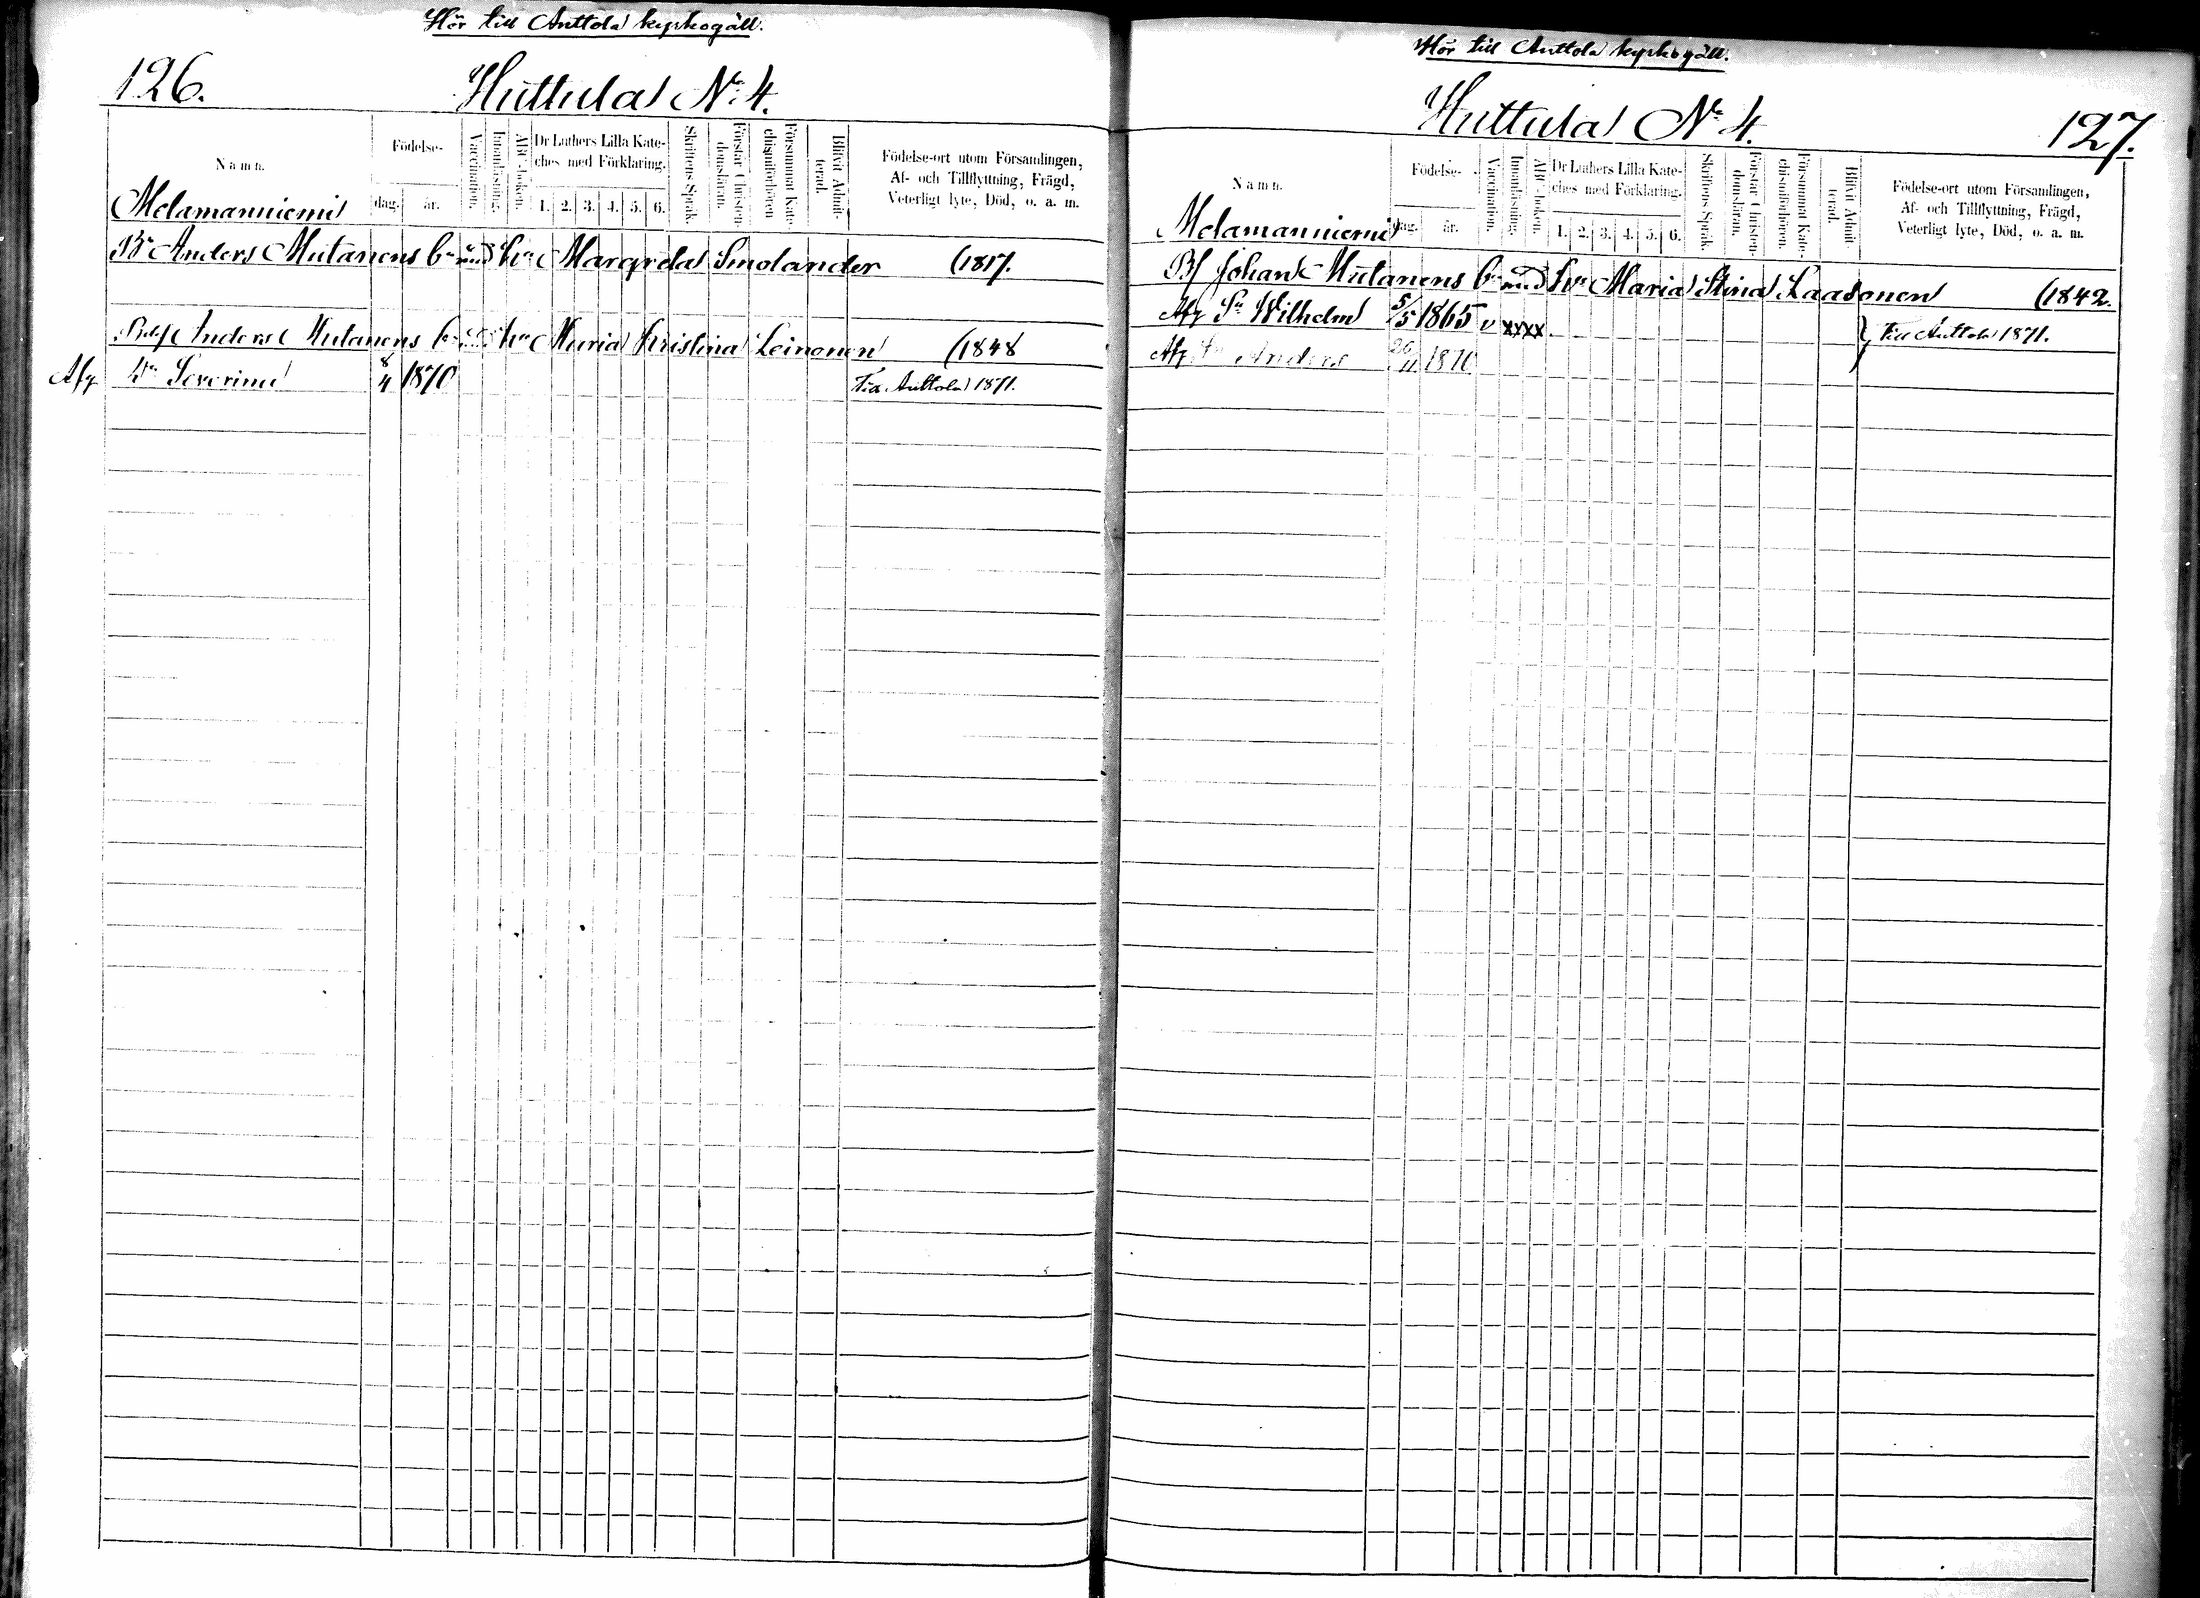 Hör till Anttola kyrkogäll.
126.
Huttula No 4.
Namn.
Födelse-
dag.
år.
Vaccination.
Innanläsning.
ABC-boken.
Dr Luthers Lilla Kate-
ches med Förklaring.
1. 2. 3. 4. 5. 6.
Skriftens Språk.
Förstår Christen-
domsläran.
Försummat Kate-
chismiförhören
Blifvit Admit-
terad.
Födelse-ort utom Församlingen,
Af- och Tillflyttning, Frägd,
Veterligt lyte, Död, o. a. m.
Melamanniemi
Bn Anders Mutanens b. med hu Margreda Smolander (1817.
Anders Mutanens b. hu Maria Kristina Leinonen (1848
Afg Dr Severina 8/4 1870 Till Anttola 1871.
Hör till Anttola kyrkogäll.
Huttula No 4.
127.
Namn.
Födelse-
dag.
år.
Vaccination.
Innanläsning.
ABC-boken.
Dr Luthers Lilla Kate-
ches med Förklaring.
1. 2. 3. 4. 5. 6.
Skriftens Språk.
Förstår Christen-
domsläran.
Försummat Kate-
chismiförhören.
Blifvit Admit-
terad.
Födelse-ort utom Församlingen,
Af- och Tillflyttning, Frägd,
Veterligt lyte, Död, o. a. m.
Melamanniemi
Bf Johan Mutanens b. med hu Maria Stina Laasonen (1842.
Afg Sn Wilhelm 5/5 1865 v xxxx
Till Anttola 1871.
Afg Sn Anders 26/11 1870